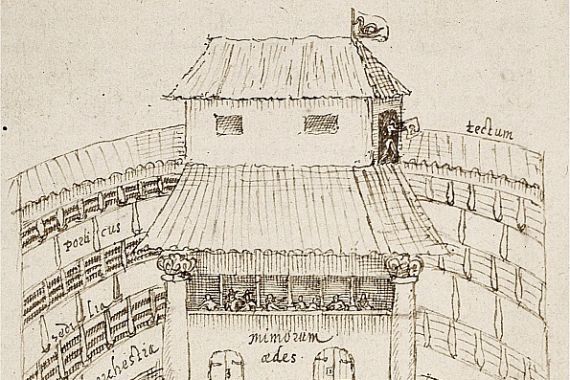 tectum
porticus
sedilia
orchestra
mimorum
ædes.